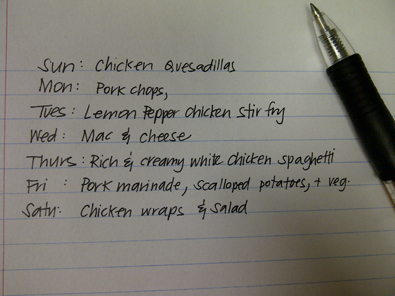 Sun: Chicken Quesadillas
Mon: Pork chops,
Tues: Lemon Pepper Chicken stir fry
Wed: Mac & cheese
Thurs: Rich & creamy white chicken spaghetti
Fri : Pork marinade, scalloped potatoes, + veg.
Satu: Chicken wraps & Salad